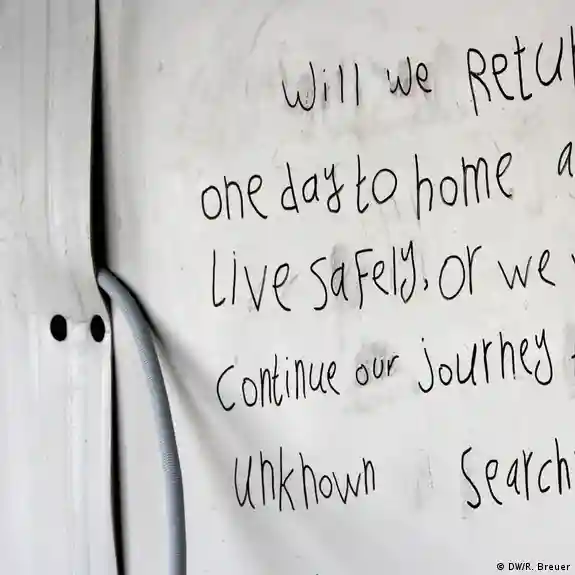 Will we Retu
one day to home a
Live safely, or we
Continue our journey
unknown Search
© DW/R. Breuer